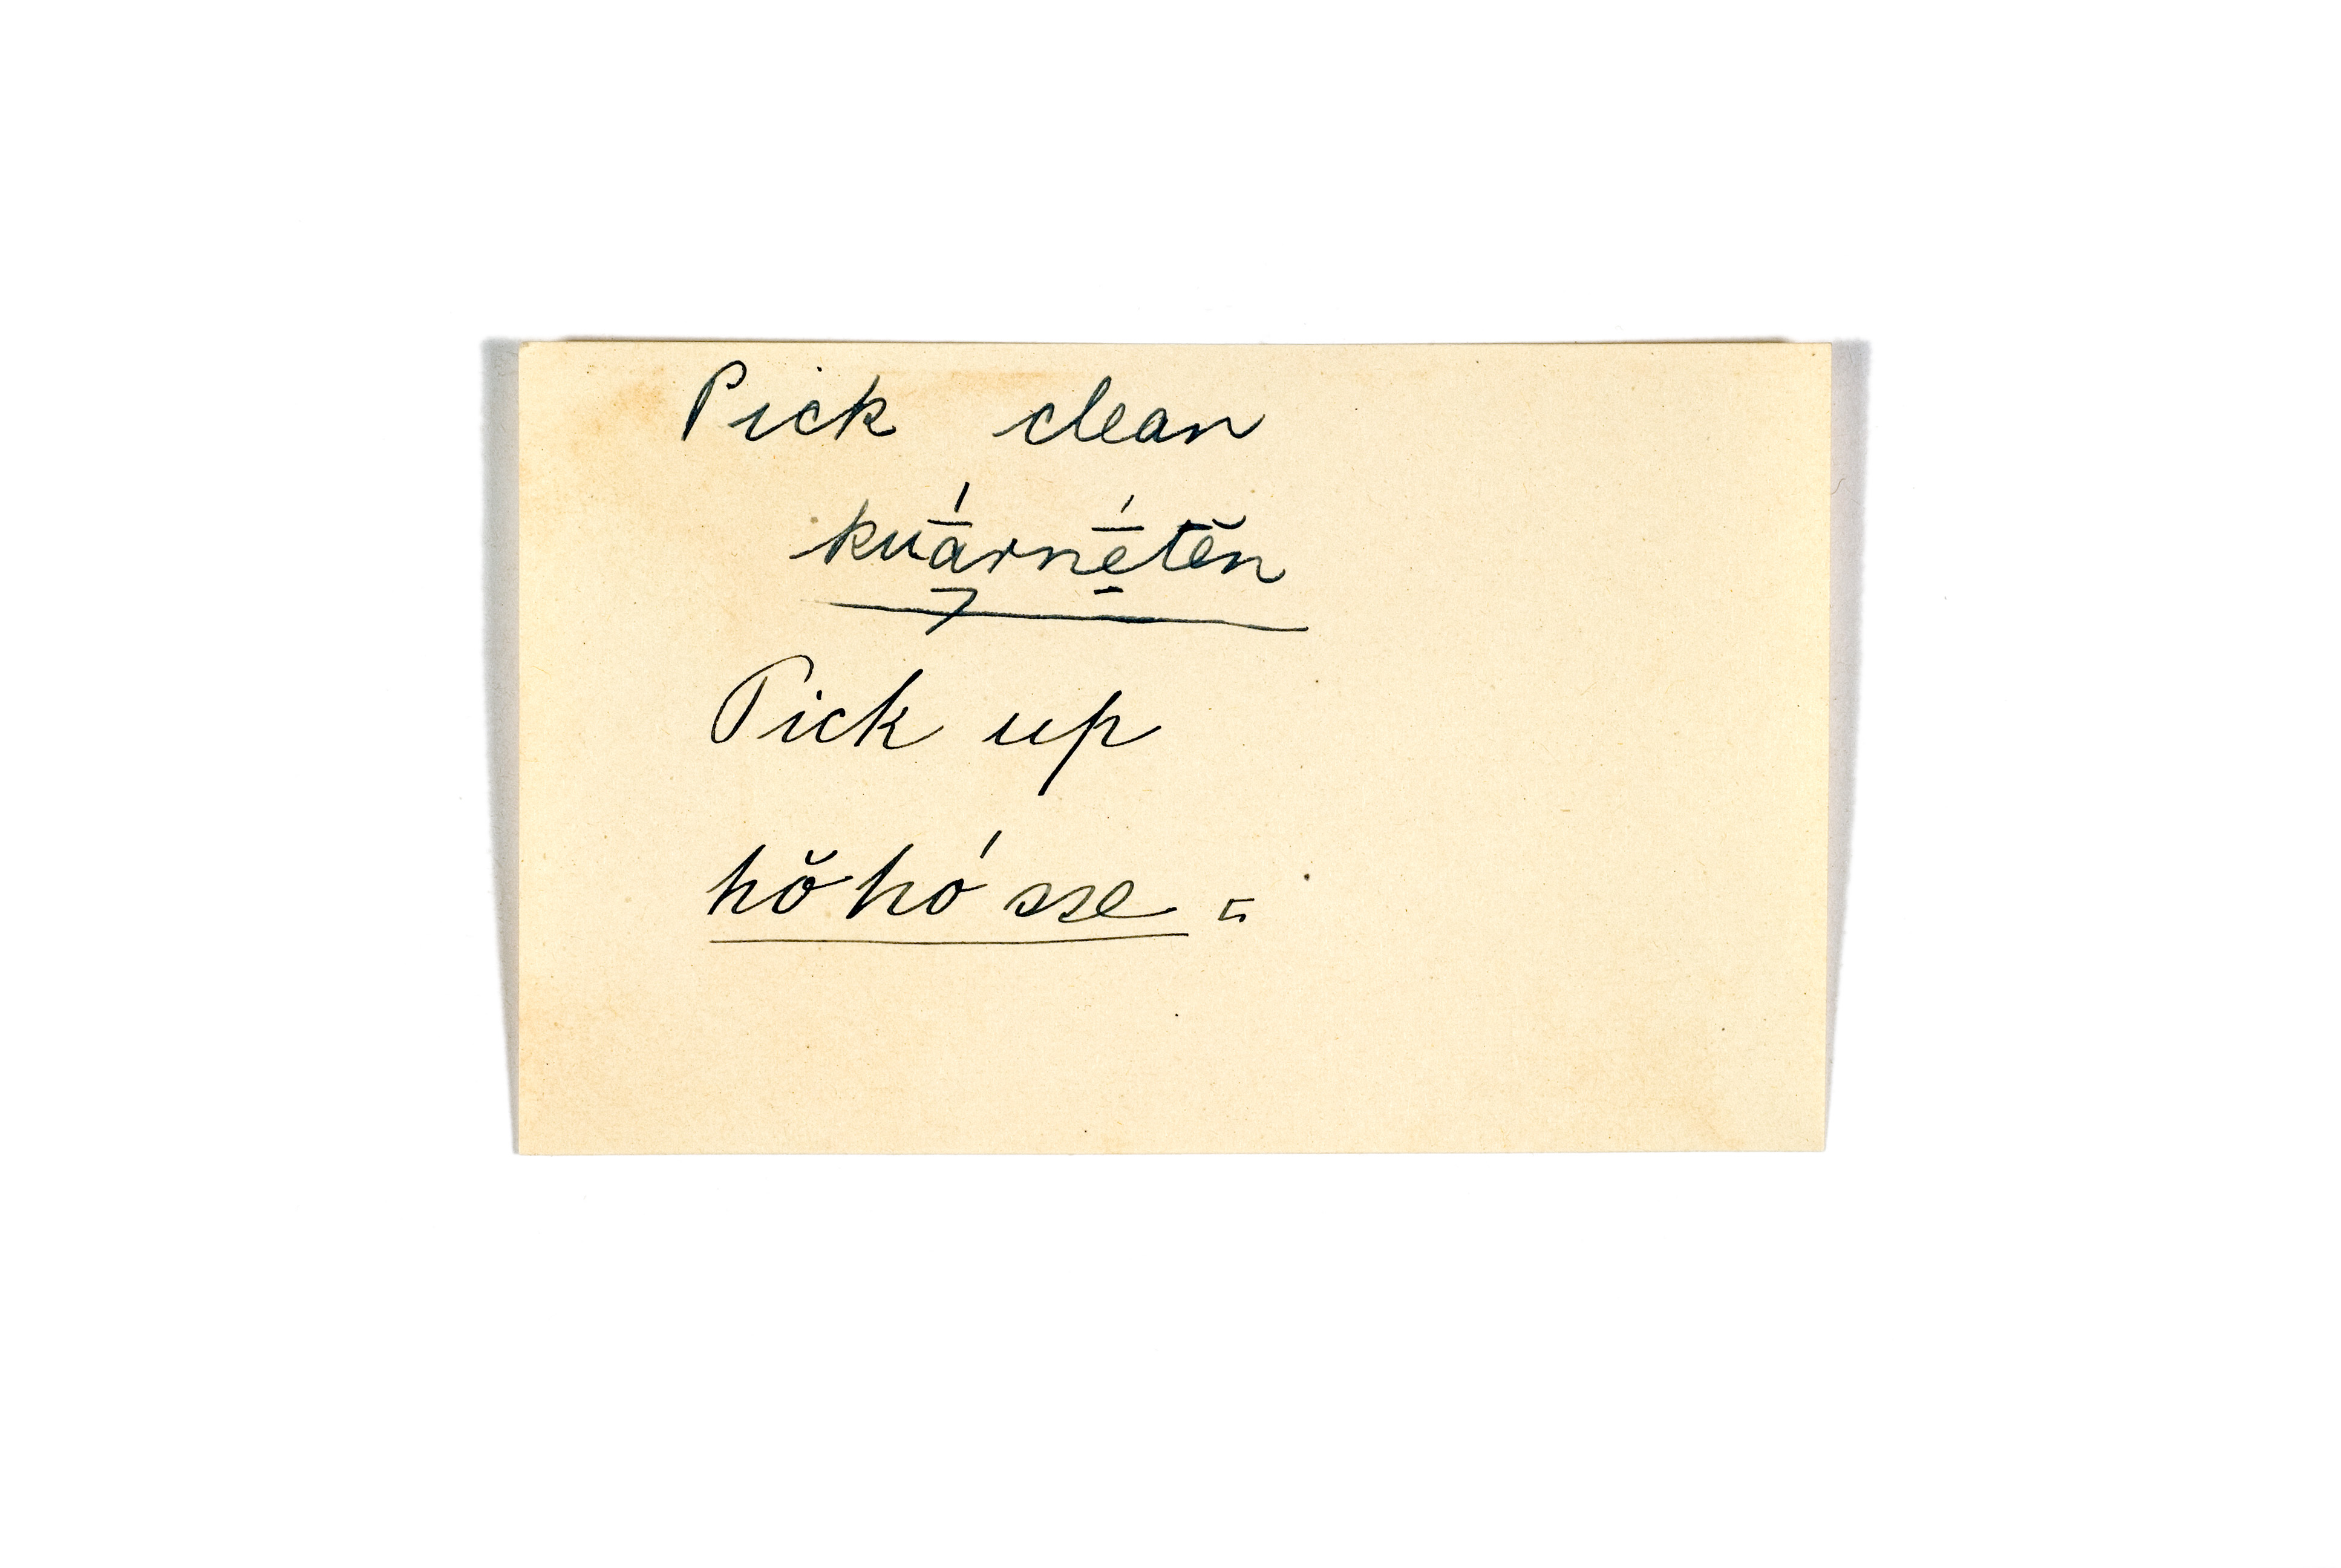 Pick clean
kvā́rnḗtĕn
Pick up
hŏhó sse =